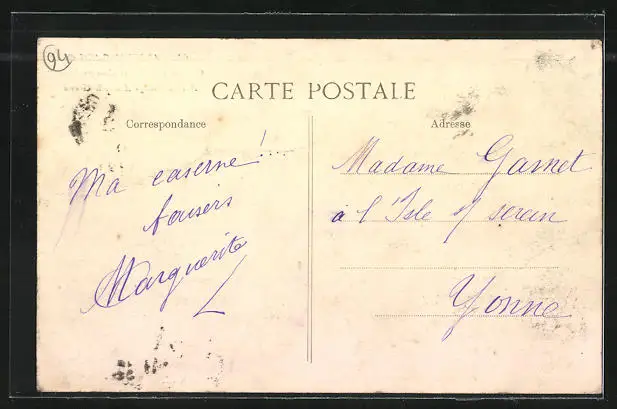 94
CARTE POSTALE
Correspondance
Adresse
Ma caserne !...
baisers
Marguerite
Madame Garnet
à l'Isle s/ serein
Yonne